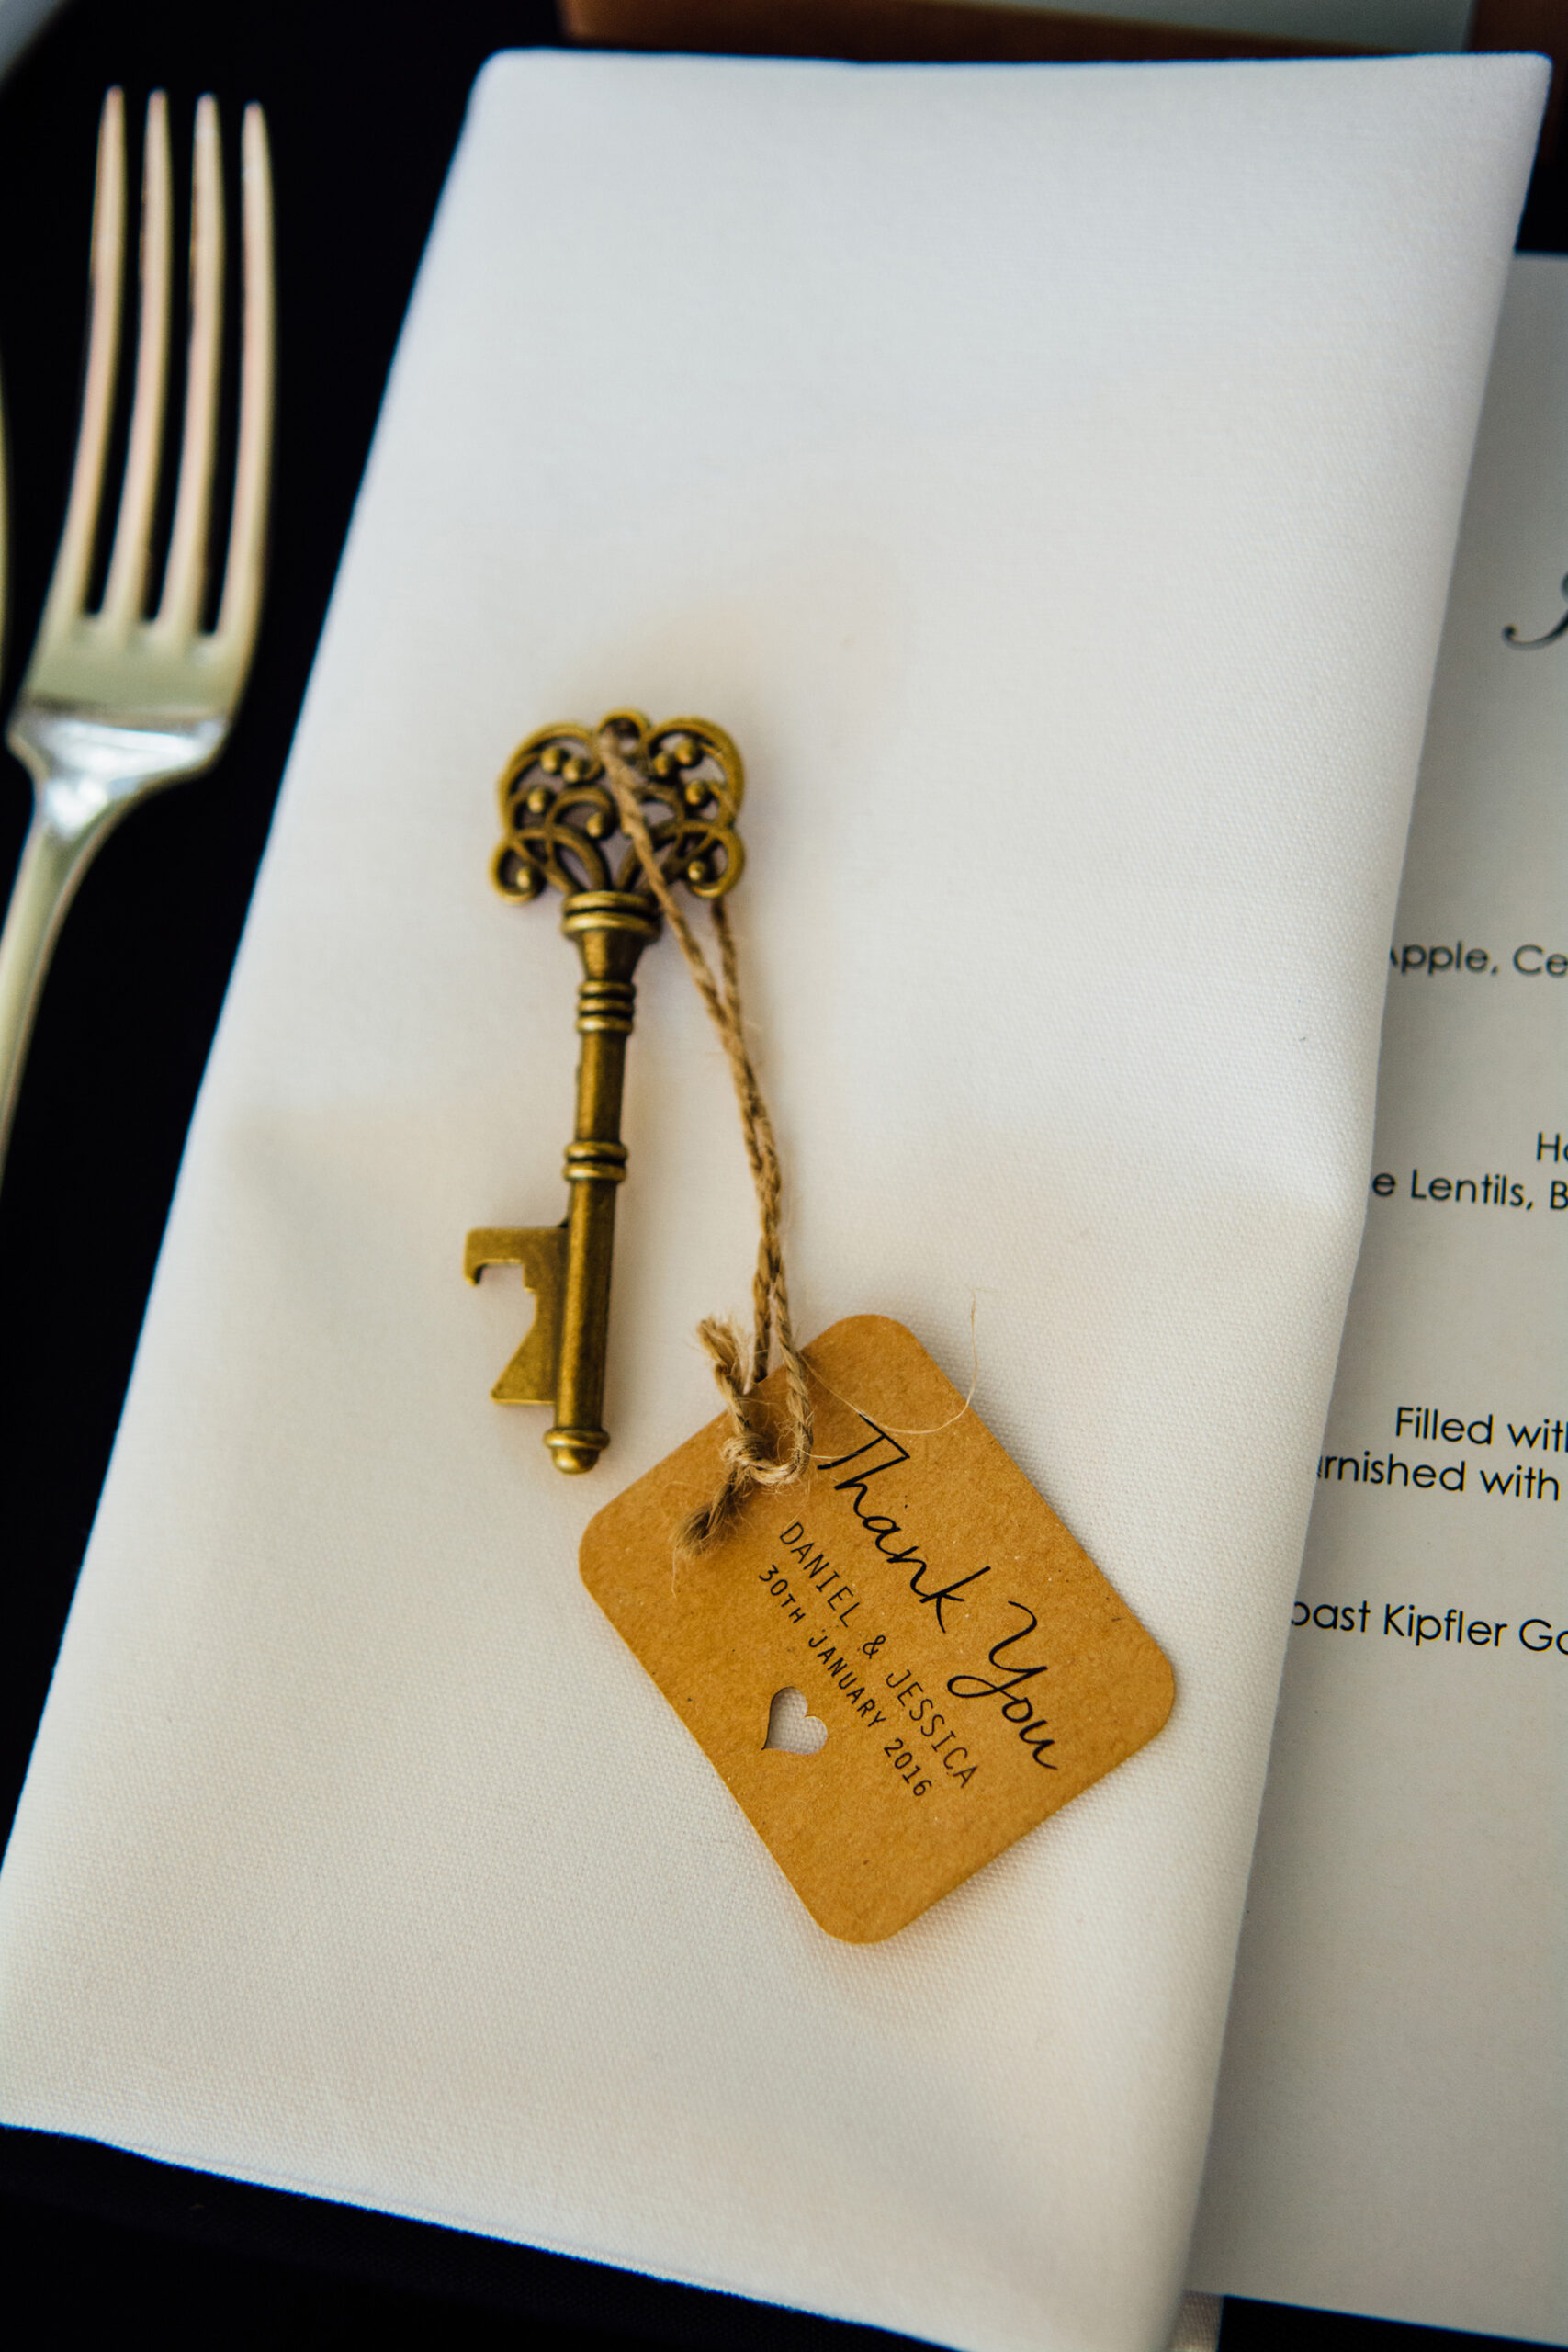 Thank You
DANIEL & JESSICA
30TH JANUARY 2016
Apple, Ce
Ho
e Lentils, B
Filled with
rnished with
oast Kipfler Go